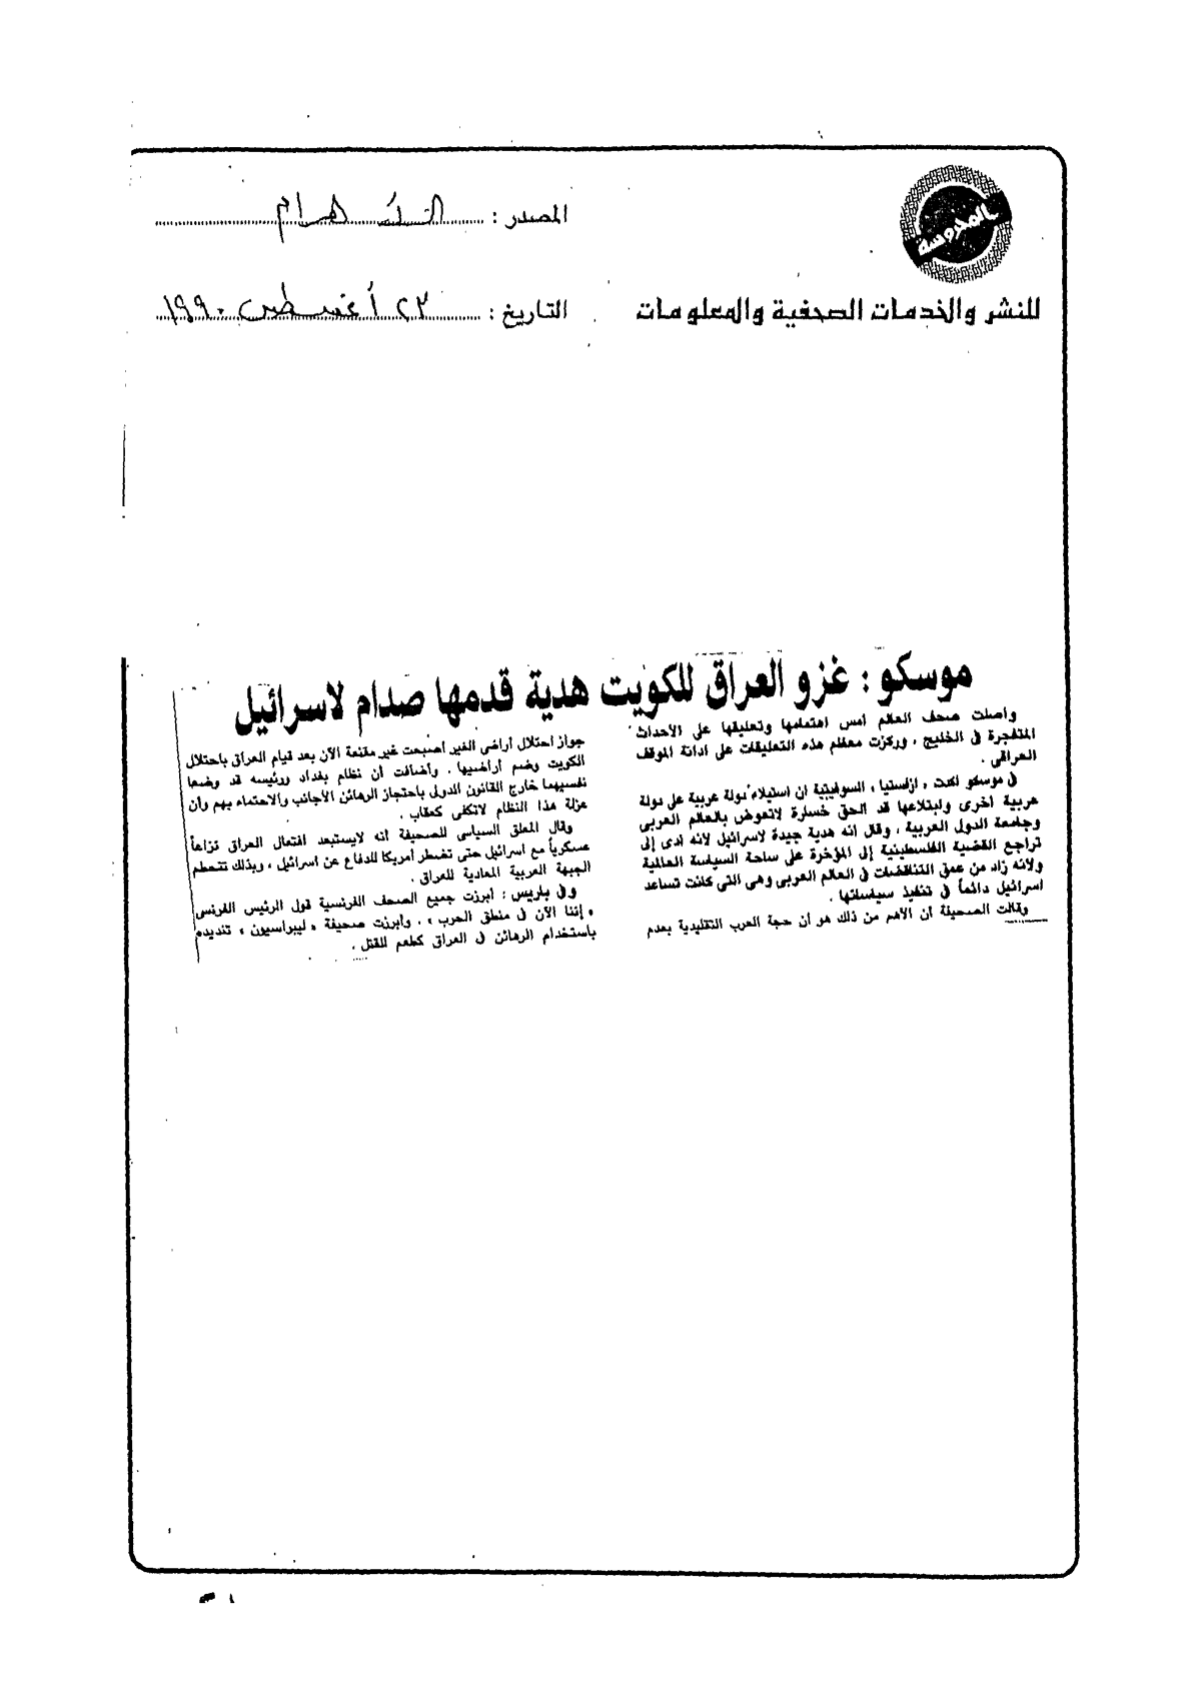 المحروسة
للنشر والخدمات الصحفية والمعلومات
المصدر : الأهرام
التاريخ : ٢٣ أغسطس ١٩٩٠
موسكو : غزو العراق للكويت هدية قدمها صدام لاسرائيل
واصلت صحف العالم أمس اهتمامها وتعليقها على الأحداث
المتفجرة فى الخليج ، وركزت معظم هذه التعليقات على ادانة الموقف
العراقى .
فى موسكو اكدت ، ازفستيا ، السوفيتية ان استيلاء دولة عربية على دولة
عربية اخرى وابتلاعها قد الحق خسارة لاتعوض بالعالم العربى
وجامعة الدول العربية ، وقال انه هدية جيدة لاسرائيل لانه ادى إلى
تراجع القضية الفلسطينية إلى المؤخرة على ساحة السياسة العالمية
ولانه زاد من عمق التناقضات فى العالم العربى وهى التى كانت تساعد
اسرائيل دائماً فى تنفيذ سياساتها .
وقالت الصحيفة ان الأهم من ذلك هو أن حجة العرب التقليدية بعدم
جواز احتلال أراضى الغير أصبحت غير مقنعة الآن بعد قيام العراق باحتلال
الكويت وضم أراضيها . وأضافت أن نظام بغداد ورئيسه قد وضعا
نفسيهما خارج القانون الدولى باحتجاز الرهائن الأجانب والاحتماء بهم وأن
عزلة هذا النظام لاتكفى كعقاب .
وقال المعلق السياسى للصحيفة أنه لايستبعد افتعال العراق نزاعاً
عسكرياً مع اسرائيل حتى تضطر أمريكا للدفاع عن اسرائيل ، وبذلك تتحطم
الجبهة العربية المعادية للعراق .
وفى باريس : أبرزت جميع الصحف الفرنسية قول الرئيس الفرنسى
« إننا الآن فى منطق الحرب » ، وأبرزت صحيفة « ليبراسيون » تنديده
باستخدام الرهائن فى العراق كطعم للقتل .